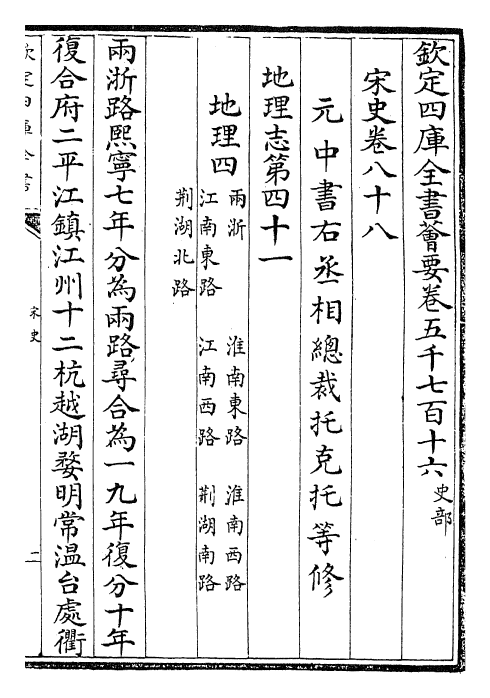 欽定四庫全書薈要卷五千七百十六 史部
宋史卷八十八
元中書右丞相總裁托克托等修
地理志第四十一
地理四
兩浙 淮南東路 淮南西路
江南東路 江南西路 荆湖南路
荆湖北路
兩浙路熙寧七年分為兩路尋合為一九年復分十年
復合府二平江鎮江州十二杭越湖婺明常温台處衢
欽定四庫全書
宋史